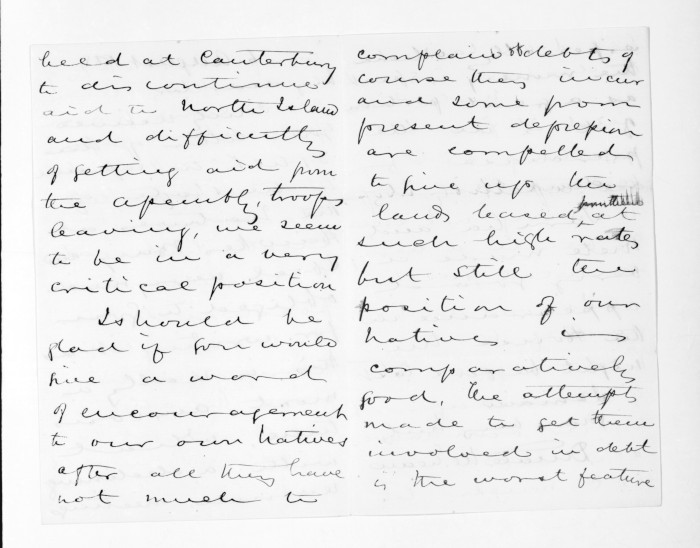 held at Canterbury
to discontinue
aid to North Island
and difficulty
of getting aid from
the assembly, troops
leaving, we seem
to be in a very
critical position
I should be
glad if you would
give a word
of encouragement
to our own Natives
after all they have
not much to
complain of debts of
course they incur
and some from
present depression
are compelled
to give up the
lands leased, at
such high rates
but still the
position of our
Natives is
comparatively
good. The attempts
made to get them
involved in debt
is the worst feature